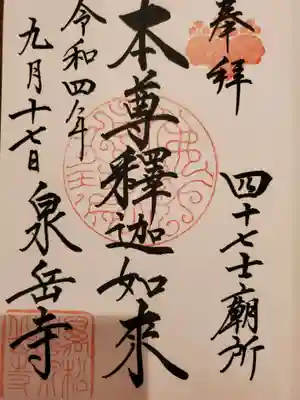 奉拝
四十七士廟所
本尊釋迦如來
令和四年
九月十七日
泉岳寺